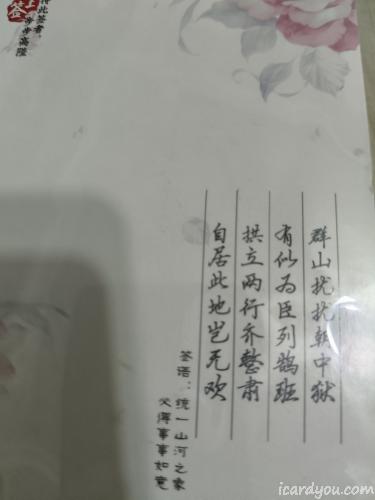 得此签者,
步步高陞
上
签
群山扰扰朝中狱
有似为臣列鹄班
拱立两行齐整肃
自居此地岂无欢
签语:统一山河之象
必得事事如意
icardyou.com